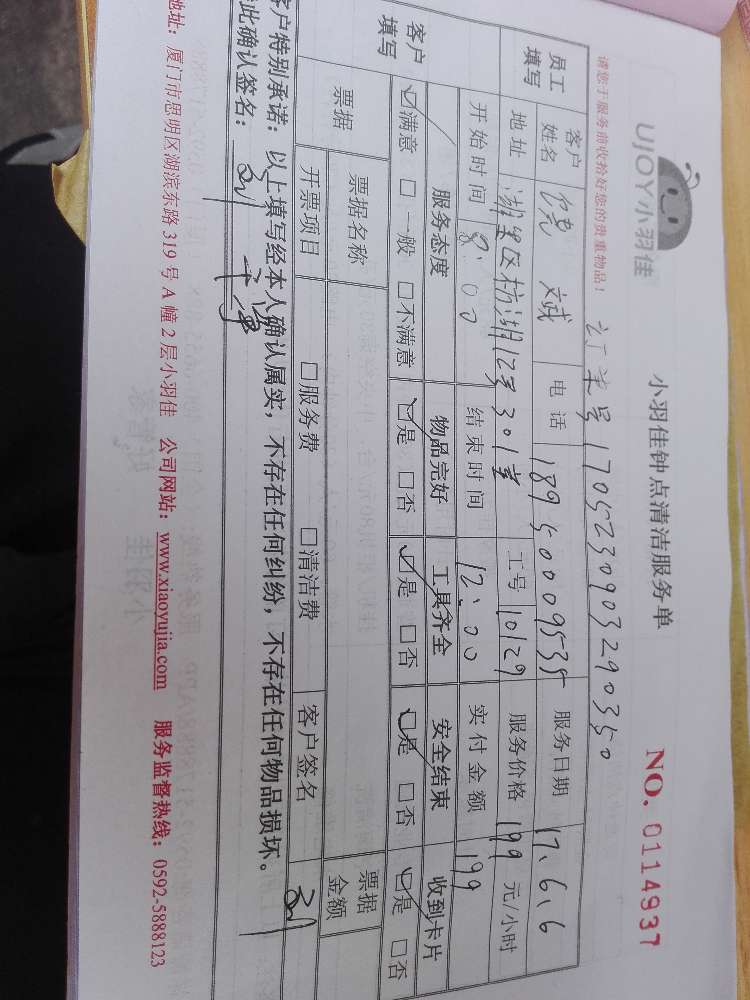 UJOY小羽佳
小羽佳钟点清洁服务单
NO. 0114937
请您于服务前收拾好您的贵重物品！
1705230903290350
员工填写 客户姓名 饶 电话 18950009535 服务日期 17.6.6
地址 湖里区枋湖12号301室 工号 10129 服务价格 199 元/小时
开始时间 8:00 结束时间 12:00 实付金额 199
客户填写 服务态度 物品完好 工具齐全 安全结束 收到卡片
☑满意 □一般 □不满意 ☑是 □否 ☑是 □否 ☑是 □否 ☑是 □否
票据 票据名称 票据金额
开票项目 □服务费 □清洁费 客户签名
客户特别承诺：以上填写经本人确认属实，不存在任何纠纷，不存在任何物品损坏。
此确认签名：
地址：厦门市思明区湖滨东路 319 号 A 幢 2 层小羽佳 公司网站：www.xiaoyujia.com 服务监督热线：0592-5888123